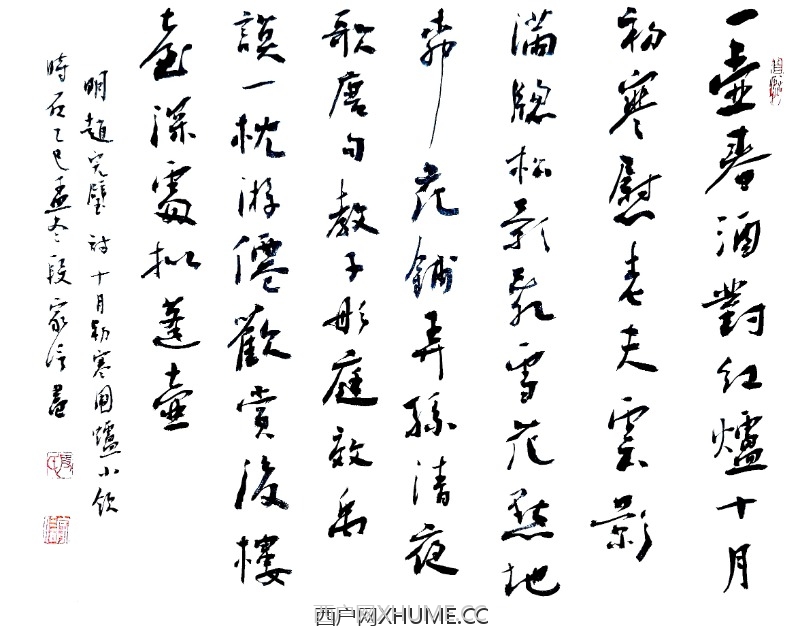 一壺春酒對紅爐十月
初寒慰老夫雲影
滿牕松影亂雪花點地
花鋪弄孫清夜
歌唐句教子彤庭效禹
謨一枕游僊歡賞後樓
臺深處擬蓬壺
明趙完璧詩十月初寒圍爐小飲
時在乙巳孟冬段家信書
西户网XHUME.CC